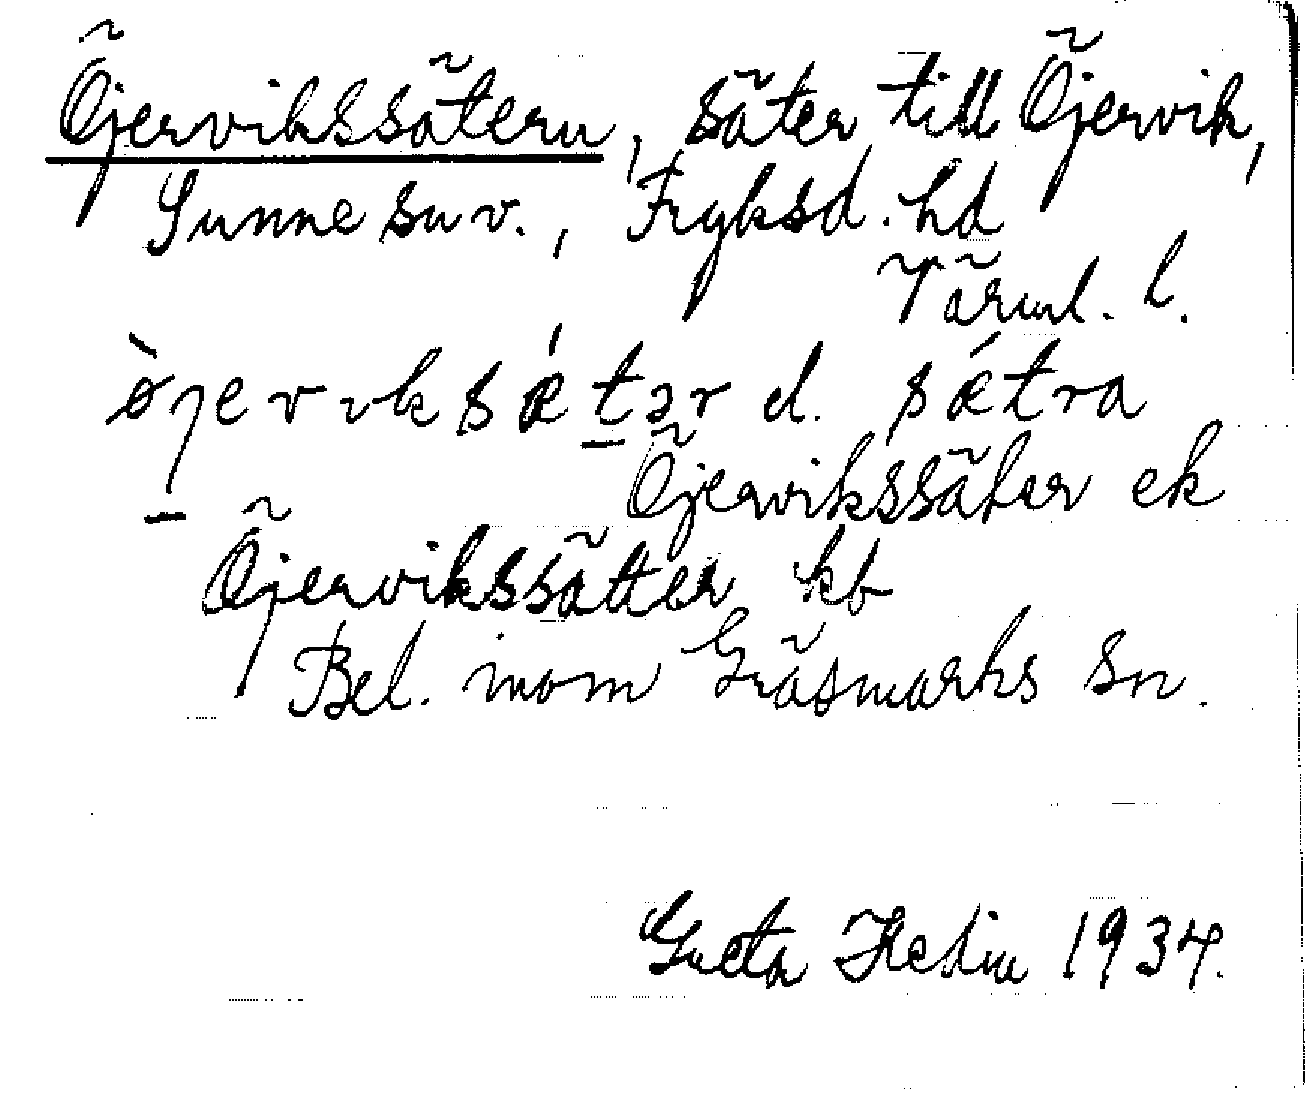 Öjervikssätern, säter till Öjervik,
Sunne sn v., Fryksd. hd
Värml. l.
òjervɩksǽtər el. sǽtra
Öjervikssäter ek
Öjervikssätter kb
Bel. inom Gräsmarks sn.
Greta Hedin 1934.